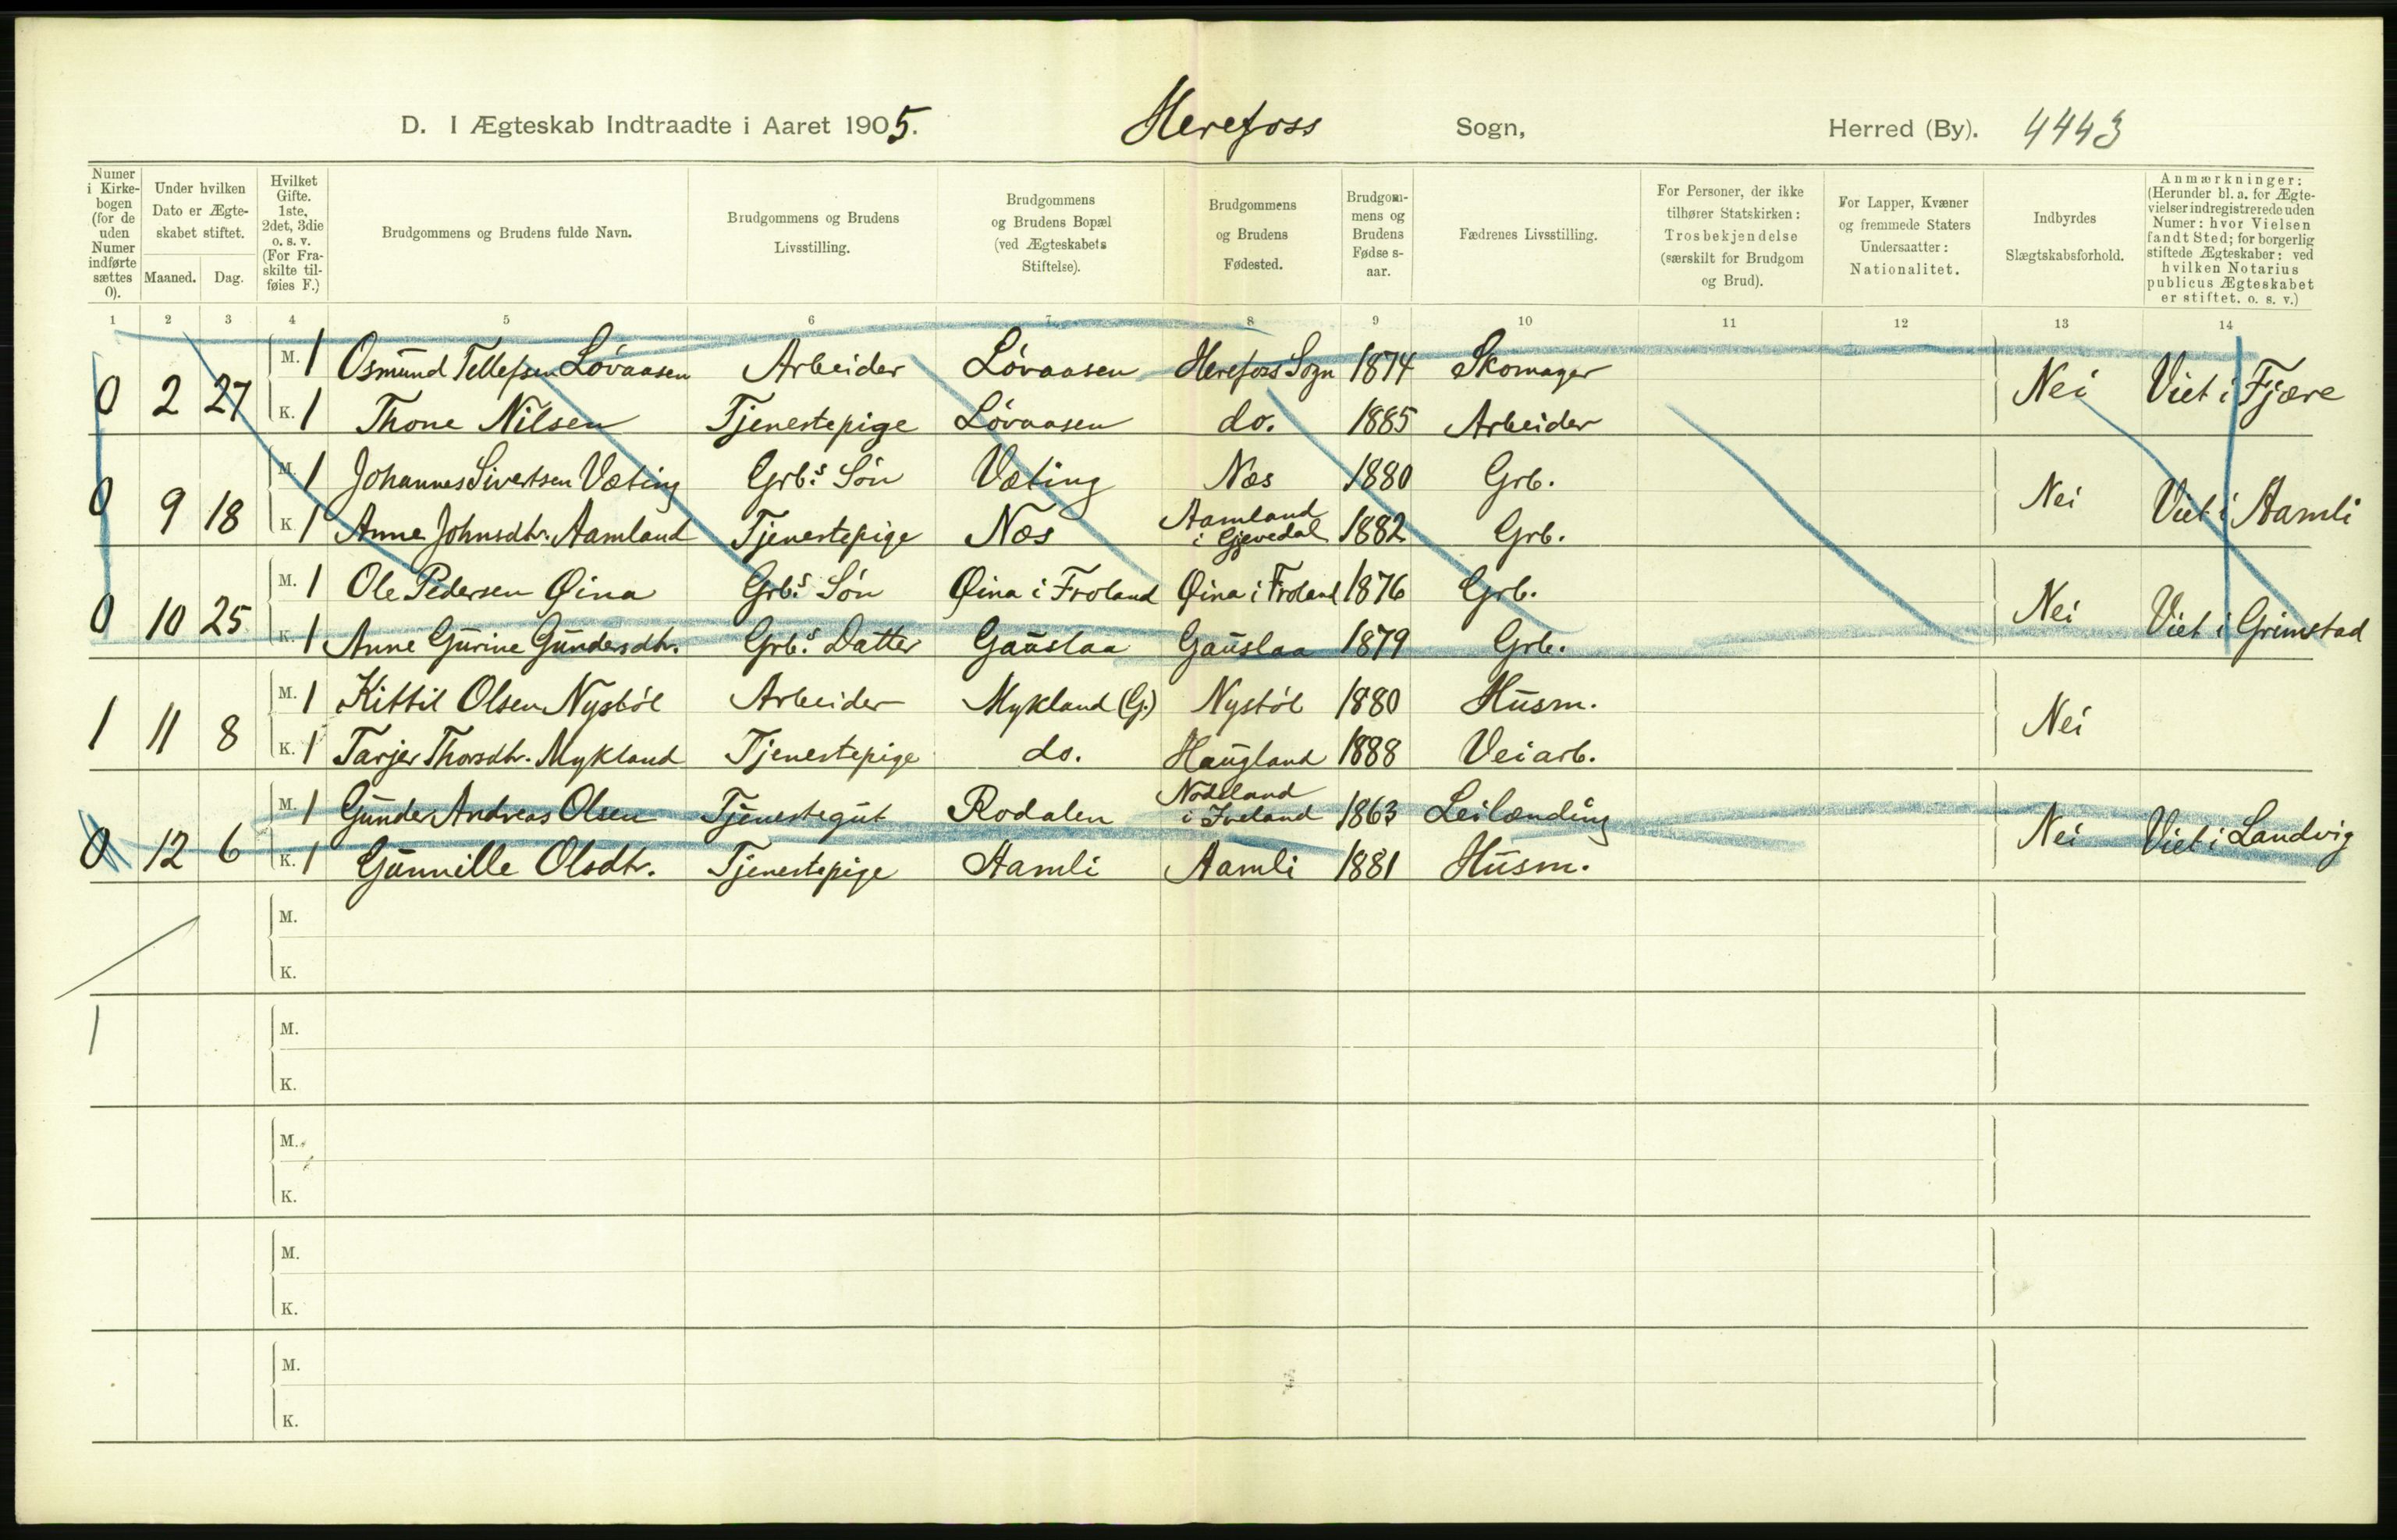 D. I Ægteskab Indtraadte i Aaret 1905. Herefoss Sogn, Herred (By). 4443
Numer i Kirkebogen (for de uden Numer indførte sættes 0).
Under hvilken Dato er Ægteskabet stiftet.
Maaned. Dag.
Hvilket Gifte. 1ste, 2det, 3die o. s. v. (For Fraskilte tilføies F.)
Brudgommens og Brudens fulde Navn.
Brudgommens og Brudens Livsstilling.
Brudgommens og Brudens Bopæl (ved Ægteskabets Stiftelse).
Brudgommens og Brudens Fødested.
Brudgommens og Brudens Fødselsaar.
Fædrenes Livsstilling.
For Personer, der ikke tilhører Statskirken: Trosbekjendelse (særskilt for Brudgom og Brud).
For Lapper, Kvæner og fremmede Staters Undersaatter: Nationalitet.
Indbyrdes Slægtskabsforhold.
Anmærkninger: (Herunder bl. a. for Ægtevielser indregistrerede uden Numer: hvor Vielsen fandt Sted; for borgerlig stiftede Ægteskaber: ved hvilken Notarius publicus Ægteskabet er stiftet. o. s. v.)
1 2 3 4 5 6 7 8 9 10 11 12 13 14
M. 1 Osmund Tellefsen Løvaasen Arbeider Løvaasen Herefoss Sogn 1874 Skomager
0 2 27 Nei Viet i Fjære
K. 1 Thone Nilsen Tjenestepige Løvaasen do. 1885 Arbeider
M. 1 Johannes Sivertsen Væting Grb.s Søn Væting Næs 1880 Grb.
0 9 18 Nei Viet i Aamli
K. 1 Anne Johnsdtr. Aamland Tjenestepige Næs Aamland i Gjøvedal 1882 Grb.
M. 1 Ole Pedersen Øina Grb.s Søn Øina i Froland Øina i Froland 1876 Grb.
0 10 25 Nei Viet i Grimstad
K. 1 Anne Gurine Gundersdtr. Grb.s Datter Gauslaa Gauslaa 1879 Grb.
M. 1 Kittil Olsen Nystøl Arbeider Mykland (G.) Nystøl 1880 Husm.
1 11 8 Nei
K. 1 Tarjer Thorsdtr. Mykland Tjenestepige do. Haugland 1888 Veiarb.
M. 1 Gunder Andreas Olsen Tjenestegut Rodalen Nodeland i Iveland 1863 Leilænding
0 12 6 Nei Viet i Landvig
K. 1 Gunnille Olsdtr. Tjenestepige Aamli Aamli 1881 Husm.
M.
K.
1
M.
K.
M.
K.
M.
K.
M.
K.